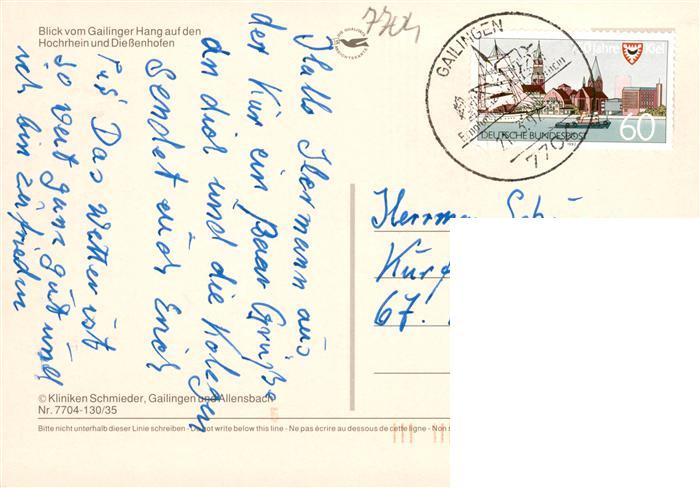 Blick vom Gailinger Hang auf den
Hochrhein und Dießenhofen
7704
GAILINGEN
750 Jahre Kiel
DEUTSCHE BUNDESPOST
60
770
Hallo Hermann aus
der Kur ein Paar Grüße
an dich und die Kolegen
sendet euch Erich
Das Wetter ist
so weit ganz gut und
ich bin zufrieden
Herrman Sch
Kurf
67.
© Kliniken Schmieder, Gailingen und Allensbach
Nr. 7704-130/35
Bitte nicht unterhalb dieser Linie schreiben - Do not write below this line - Ne pas écrire au dessous de cette ligne - Non